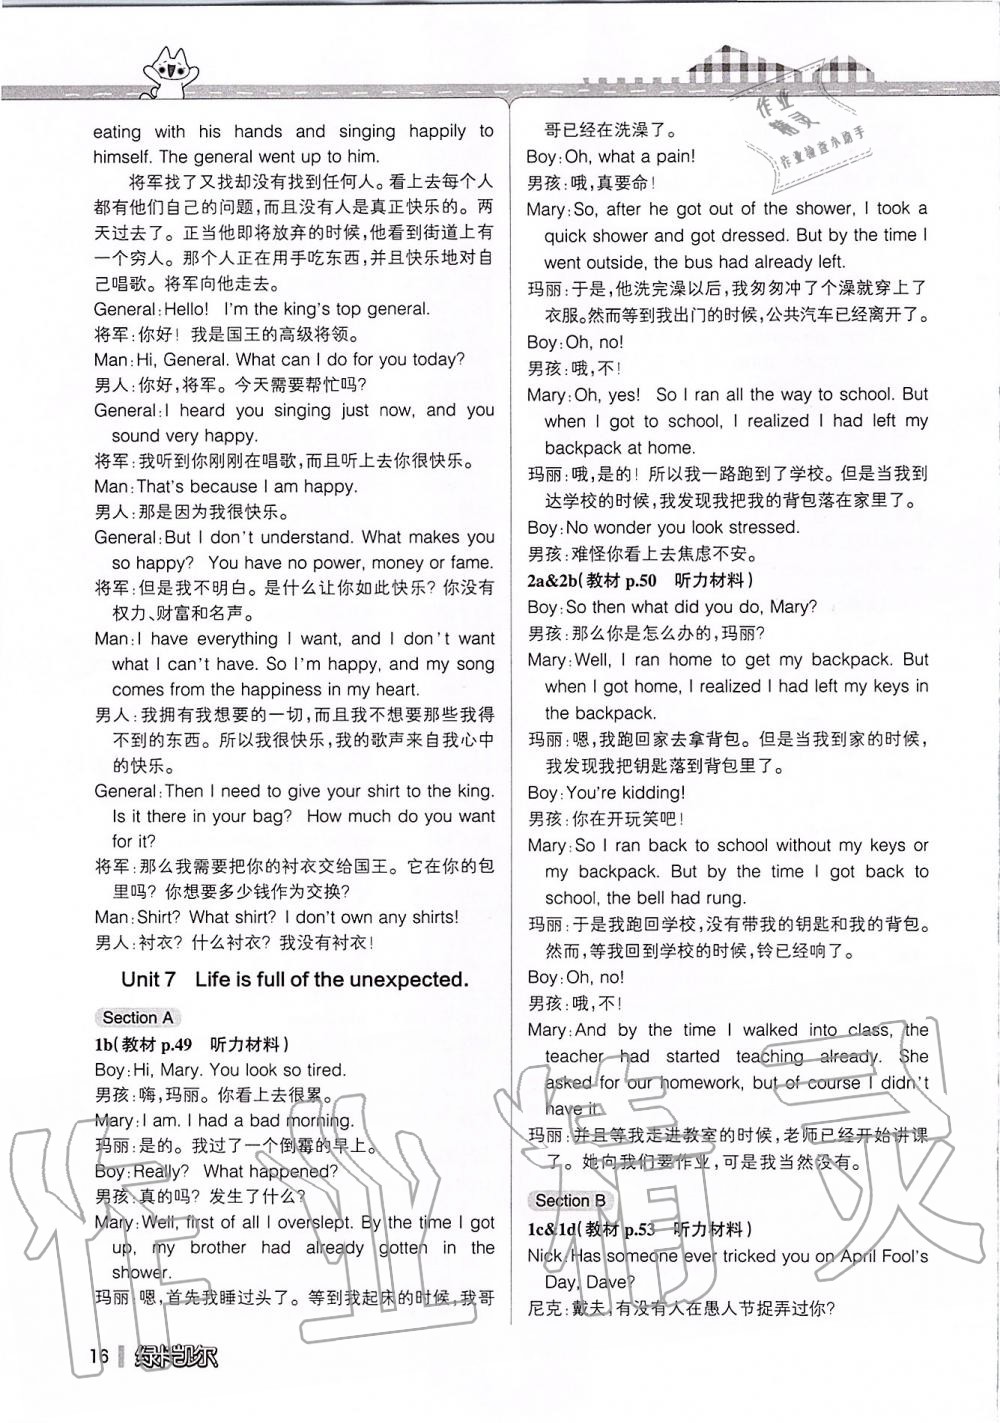 eating with his hands and singing happily to
himself. The general went up to him.
将军找了又找却没有找到任何人。看上去每个人
都有他们自己的问题,而且没有人是真正快乐的。两
天过去了。正当他即将放弃的时候,他看到街道上有
一个穷人。那个人正在用手吃东西,并且快乐地对自
己唱歌。将军向他走去。
General:Hello! I'm the king's top general.
将军:你好!我是国王的高级将领。
Man:Hi, General. What can I do for you today?
男人:你好,将军。今天需要帮忙吗?
General:I heard you singing just now, and you
sound very happy.
将军:我听到你刚刚在唱歌,而且听上去你很快乐。
Man:That's because I am happy.
男人:那是因为我很快乐。
General:But I don't understand. What makes you
so happy? You have no power, money or fame.
将军:但是我不明白。是什么让你如此快乐?你没有
权力、财富和名声。
Man:I have everything I want, and I don't want
what I can't have. So I'm happy, and my song
comes from the happiness in my heart.
男人:我拥有我想要的一切,而且我不想要那些我得
不到的东西。所以我很快乐,我的歌声来自我心中
的快乐。
General:Then I need to give your shirt to the king.
Is it there in your bag? How much do you want
for it?
将军:那么我需要把你的衬衣交给国王。它在你的包
里吗?你想要多少钱作为交换?
Man:Shirt? What shirt? I don't own any shirts!
男人:衬衣?什么衬衣?我没有衬衣!
Unit 7 Life is full of the unexpected.
Section A
1b(教材 p.49 听力材料)
Boy:Hi, Mary. You look so tired.
男孩:嗨,玛丽。你看上去很累。
Mary:I am. I had a bad morning.
玛丽:是的。我过了一个倒霉的早上。
Boy:Really? What happened?
男孩:真的吗?发生了什么?
Mary:Well, first of all I overslept. By the time I got
up, my brother had already gotten in the
shower.
玛丽:嗯,首先我睡过头了。等到我起床的时候,我哥
16
绿卡凯尔
作业
精灵
作业检查小助手
哥已经在洗澡了。
Boy:Oh, what a pain!
男孩:哦,真要命!
Mary:So, after he got out of the shower, I took a
quick shower and got dressed. But by the time I
went outside, the bus had already left.
玛丽:于是,他洗完澡以后,我匆匆冲了个澡就穿上了
衣服。然而等到我出门的时候,公共汽车已经离开了。
Boy:Oh, no!
男孩:哦,不!
Mary:Oh, yes! So I ran all the way to school. But
when I got to school, I realized I had left my
backpack at home.
玛丽:哦,是的!所以我一路跑到了学校。但是当我到
达学校的时候,我发现我把我的背包落在家里了。
Boy:No wonder you look stressed.
男孩:难怪你看上去焦虑不安。
2a&2b(教材 p.50 听力材料)
Boy:So then what did you do, Mary?
男孩:那么你是怎么办的,玛丽?
Mary:Well, I ran home to get my backpack. But
when I got home, I realized I had left my keys in
the backpack.
玛丽:嗯,我跑回家去拿背包。但是当我到家的时候,
我发现我把钥匙落到背包里了。
Boy:You're kidding!
男孩:你在开玩笑吧!
Mary:So I ran back to school without my keys or
my backpack. But by the time I got back to
school, the bell had rung.
玛丽:于是我跑回学校,没有带我的钥匙和我的背包。
然而,等我回到学校的时候,铃已经响了。
Boy:Oh, no!
男孩:哦,不!
Mary:And by the time I walked into class, the
teacher had started teaching already. She
asked for our homework, but of course I didn't
have it.
玛丽:并且等我走进教室的时候,老师已经开始讲课
了。她向我们要作业,可是我当然没有。
Section B
1c&1d(教材 p.53 听力材料)
Nick:Has someone ever tricked you on April Fool's
Day, Dave?
尼克:戴夫,有没有人在愚人节捉弄过你?
作业精灵